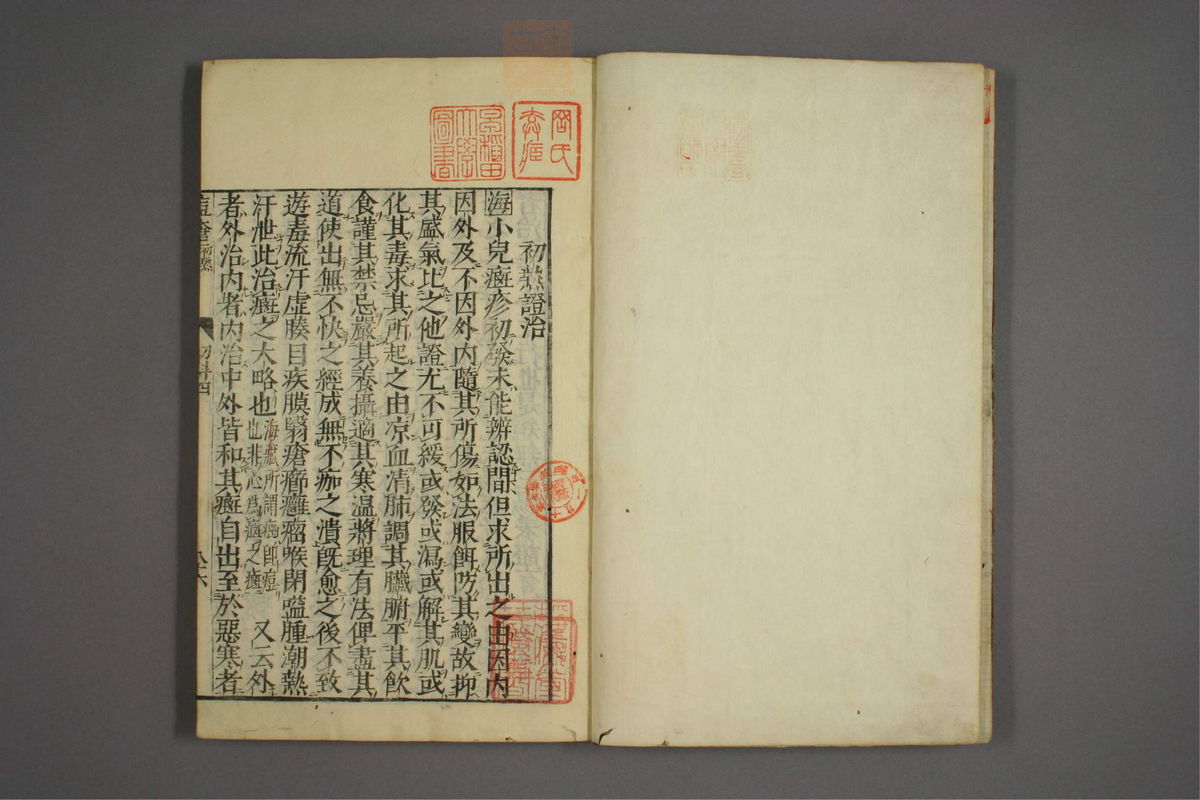 初熱證治
海小兒癍疹初發未能辨認間但求所出之由因内
因外及不因外内隨其所傷如法服餌防其變故抑
其盛氣比之他證尤不可緩或發或瀉或解其肌或
化其毒求其所起之由凉血清肺調其臓腑平其飲
食謹其禁忌嚴其養攝適其寒温將理有法俾盡其
道使出無不快之經成無不痂之潰既愈之後不致
遊毒流汗虛腠目疾膜翳瘡癤癰瘤喉閉嗌腫潮熱
汗泄此治癍之大略也海藏所謂癍即痘也非心為癍之癍又云外
者外治内者内治中外皆和其癍自出至於惡寒者